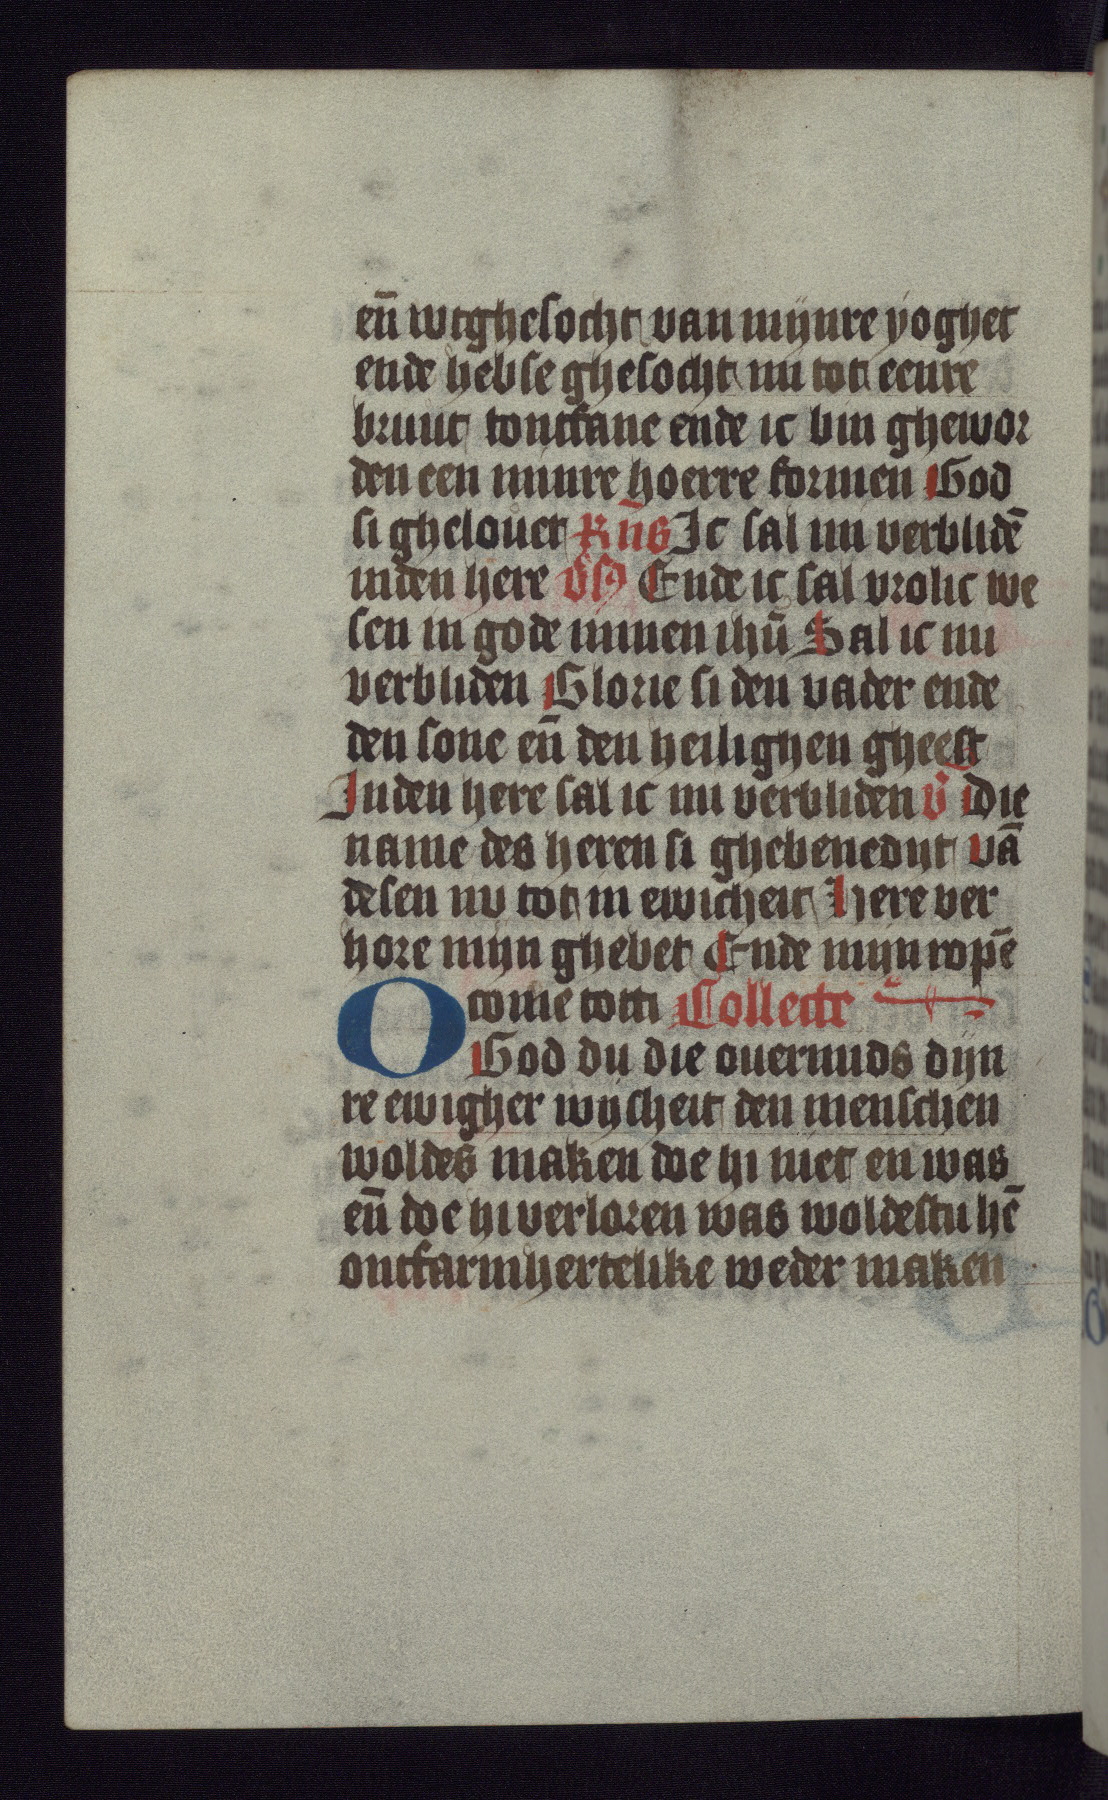 en̄ wtghesocht van mijnre yoghet
ende hebse ghesocht nu tot eenre
bruut tontfane ende ic bin ghewor
den een minre hoerre formen God
si ghelouet Rn̄s Ic sal mi verblidē
inden here v̄s Ende ic sal vrolic we
sen in gode minen ihū Sal ic mi
verbliden Glorie si den vader ende
den sone en̄ den heilighen gheest
Inden here sal ic mi verbliden v̄ Die
name des heren si ghebenedijt vā
desen nv tot in ewicheit Here ver
hore mijn ghebet Ende mijn ropē
come totti Collecte
O God du die ouermids dijn
re ewigher wijsheit den menschen
woldes maken doe hi niet en was
en̄ doe hi verloren was woldestu hē
ontfarmhertelike weder maken